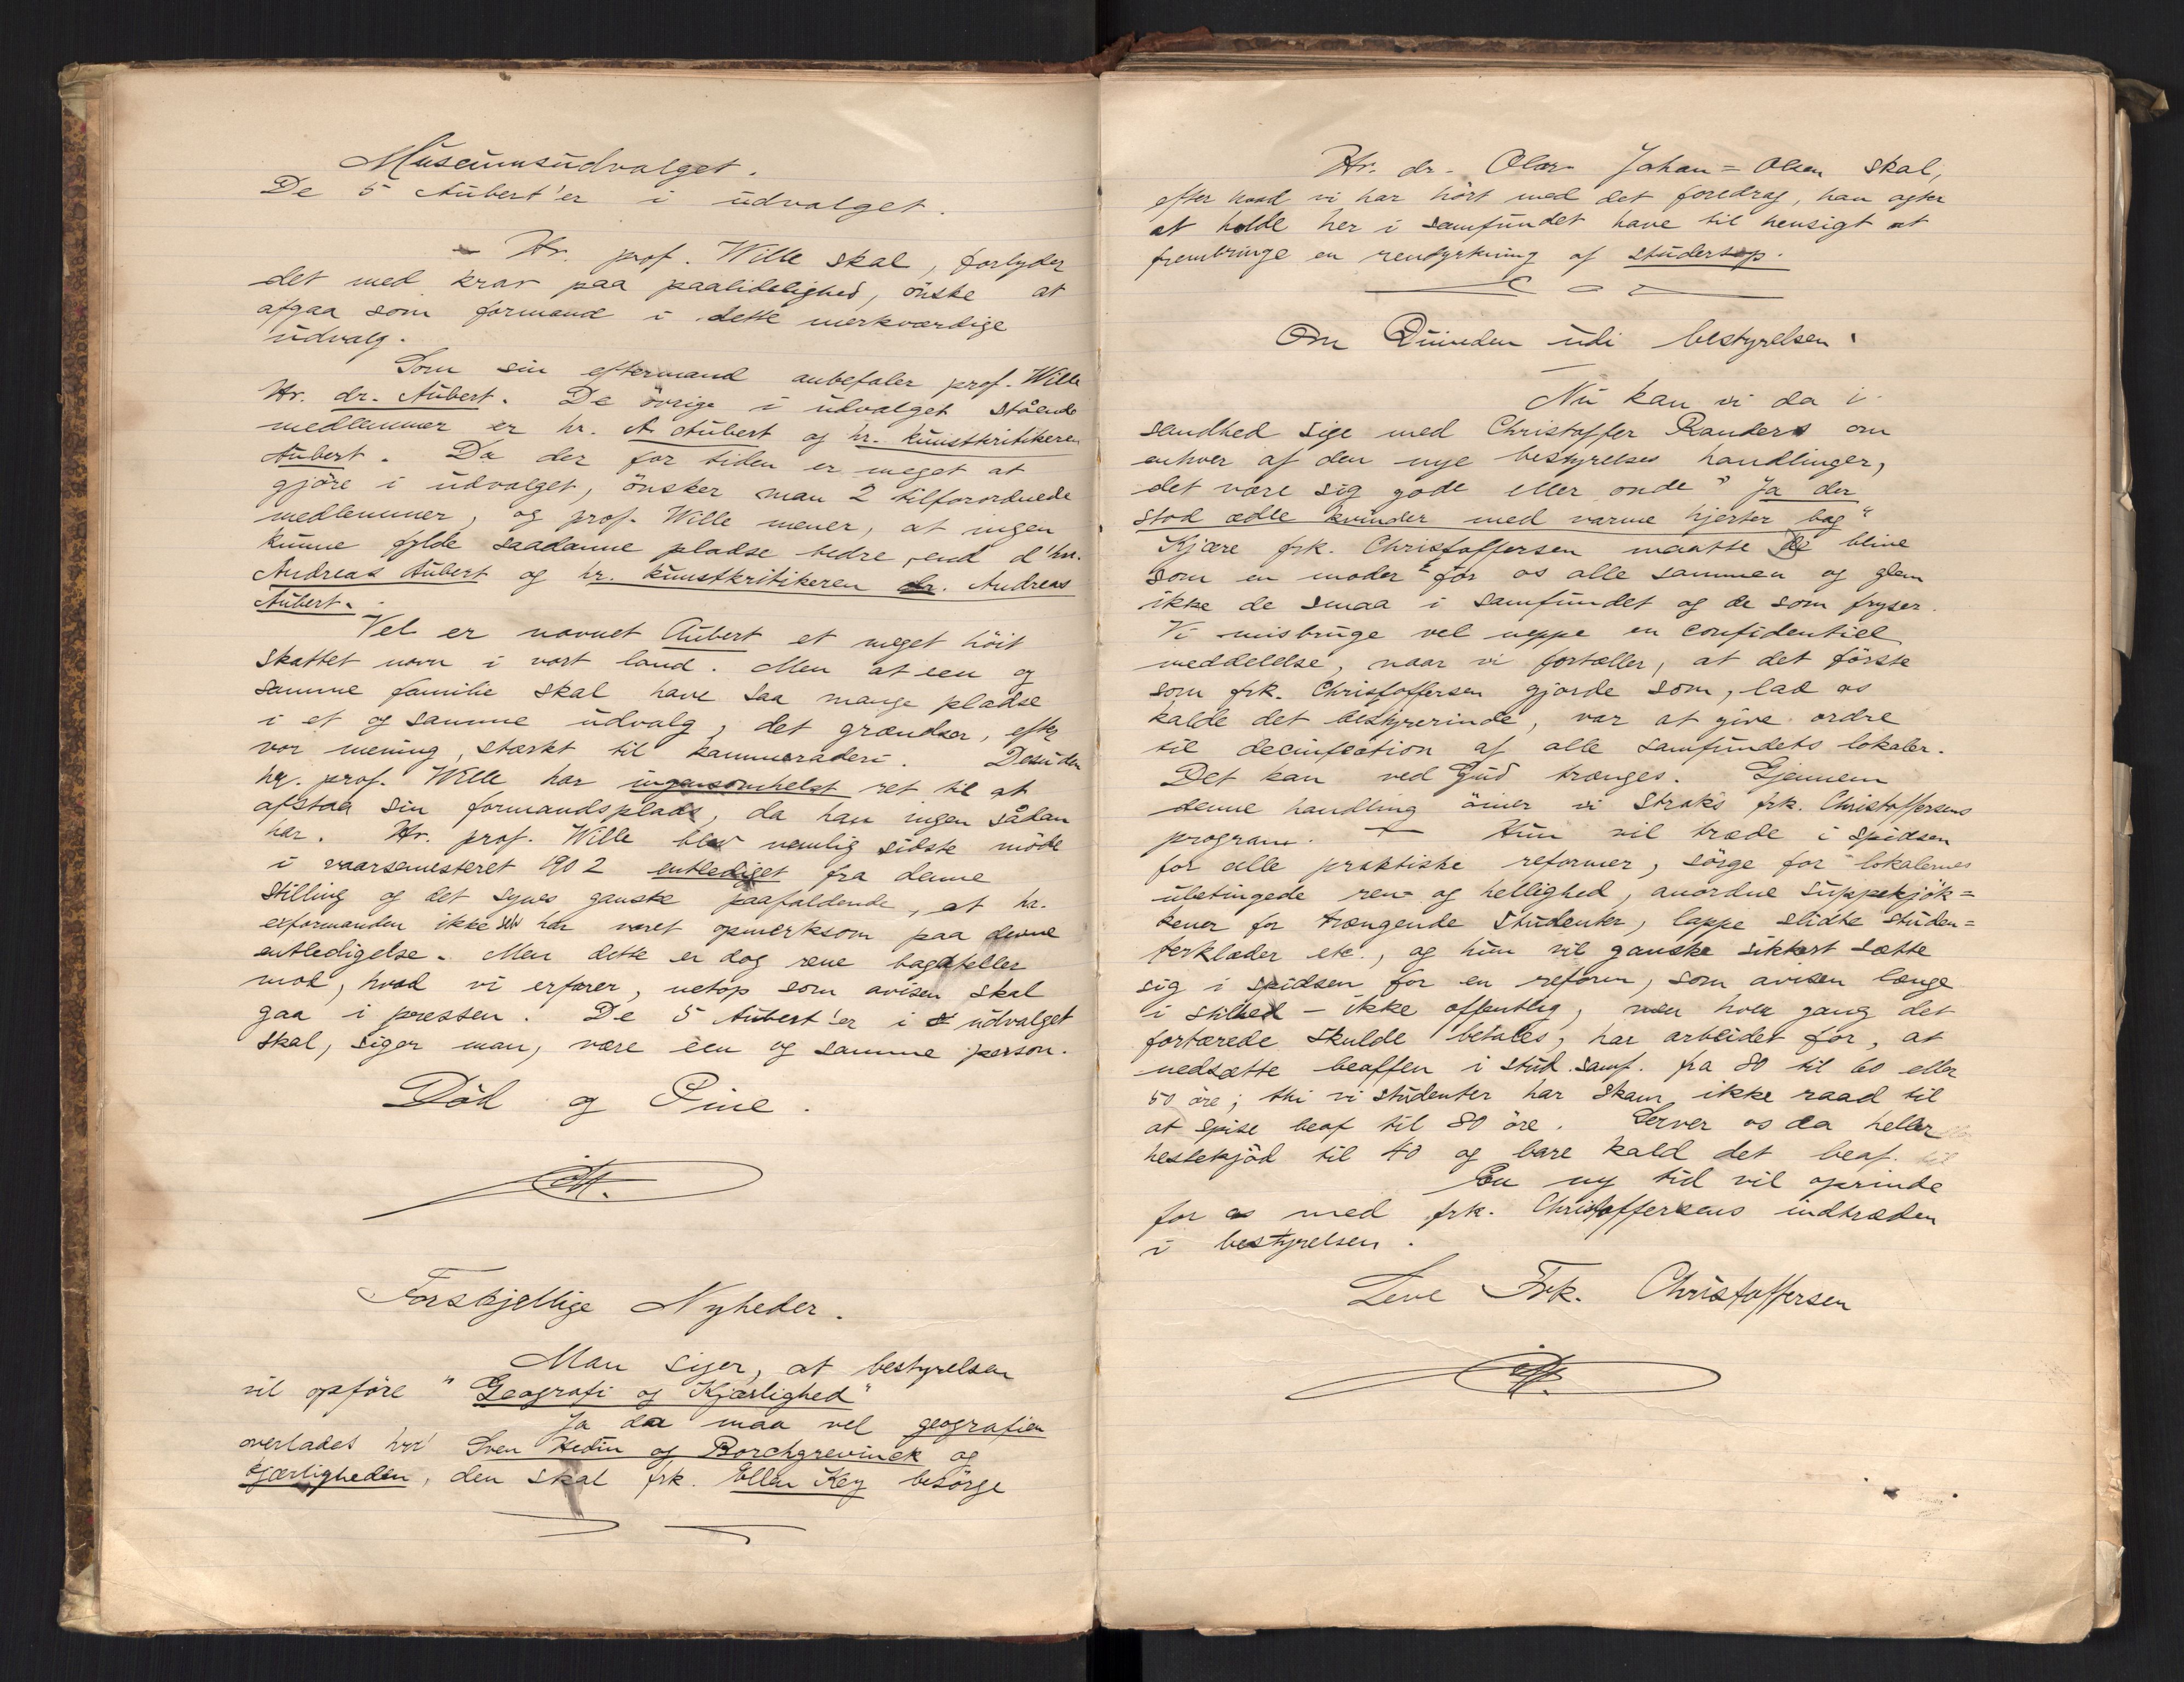 Museumsudvalget.
De 5 Aubert'er i udvalget.
Hr. prof. Wille skal, forlyder
det med krav paa paalidelighed, ønske at
afgaa som formand i dette merkværdige
udvalg.
Som sin eftermand anbefaler prof. Wille
Hr. dr. Aubert. De övrige i udvalget stående
medlemmer er hr. A. Aubert og hr. kunstkritikeren
Aubert. Da der for tiden er meget at
gjöre i udvalget, önsker man 2 tilforordnede
medlemmer, og prof. Wille mener, at ingen
kunne fylde saadanne pladse bedre, end d'hrr.
Andreas Aubert og hr. kunstkritikeren dr. Andreas
Aubert.
Vel er navnet Aubert et meget höit
skattet navn i vort land. Men at een og
samme familie skal have saa mange pladse
i et og samme udvalg, det grændser, efter
vor mening, stærkt til kammeraderi. Desuden
hr. prof. Wille har ingensomhelst ret til at
afstaa sin formandsplads, da han ingen sådan
har. Hr. prof. Wille blev nemlig sidste möde
i vaarsemesteret 1902 entlediget fra denne
stilling og det synes ganske paafaldende, at hr.
exformanden ikke selv har været opmerksom paa denne
entledigelse. Men dette er dog rene bagateller
mod, hvad vi erfarer, netop som avisen skal
gaa i pressen. De 5 Aubert'er i udvalget
skal, siger man, være een og samme person.
Död og Pine.
Forskjellige Nyheder.
Man siger, at bestyrelsen
vil opföre "Geografi og Kjærlighed"
Ja da maa vel geografien
overlades hrr Sven Hedin og Borchgrevinck og
kjærligheden, den skal frk. Ellen Key besörge
Hr. dr. Olav Johan=Olsen skal,
efter hvad vi har hört med det foredrag, han agter
at holde her i samfundet have til hensigt at
frembringe en rendyrkning af studersop.
Om Quinden udi bestyrelsen.
Nu kan vi da i
sandhed sige med Christoffer Randers om
enhver af den nye bestyrelses handlinger,
det være sig gode eller onde "Ja der
stod ædle kvinder med varme hjerter bag"
Kjære frk. Christoffersen maatte De blive
som en moder for os alle sammen og glem
ikke de smaa i samfundet og de som fryser.
Vi misbruge vel neppe en confidentiel
meddelelse, naar vi fortæller, at det förste
som frk. Christoffersen gjorde som, lad os
kalde det bestyrerinde, var at give ordre
til decinfection af alle samfundets lokaler.
Det kan ved Gud trænges. Gjennem
denne handling öiner vi straks frk. Christoffersens
program. Hun vil træde i spidsen
for alle praktiske reformer, sörge for lokalernes
ubetingede ren- og hellighed, anordne suppekjök=
kener for trængende studenter, lappe slidte studen=
terklæder etc., og hun vil ganske sikkert sætte
sig i spidsen for en reform, som avisen længe
i stilhed - ikke offentlig, men hver gang det
fortærede skulde betales, har arbeidet for, at
nedsætte beaffen i stud. samf. fra 80 til 60 eller
50 öre; thi vi studenter har skam ikke raad til
at spise beaf til 80 öre. Server os da heller
hestekjöd til 40 og bare kald det beaf.
En ny tid vil oprinde
for os med frk. Christoffersens indtræden
i bestyrelsen.
Leve Frk. Christoffersen